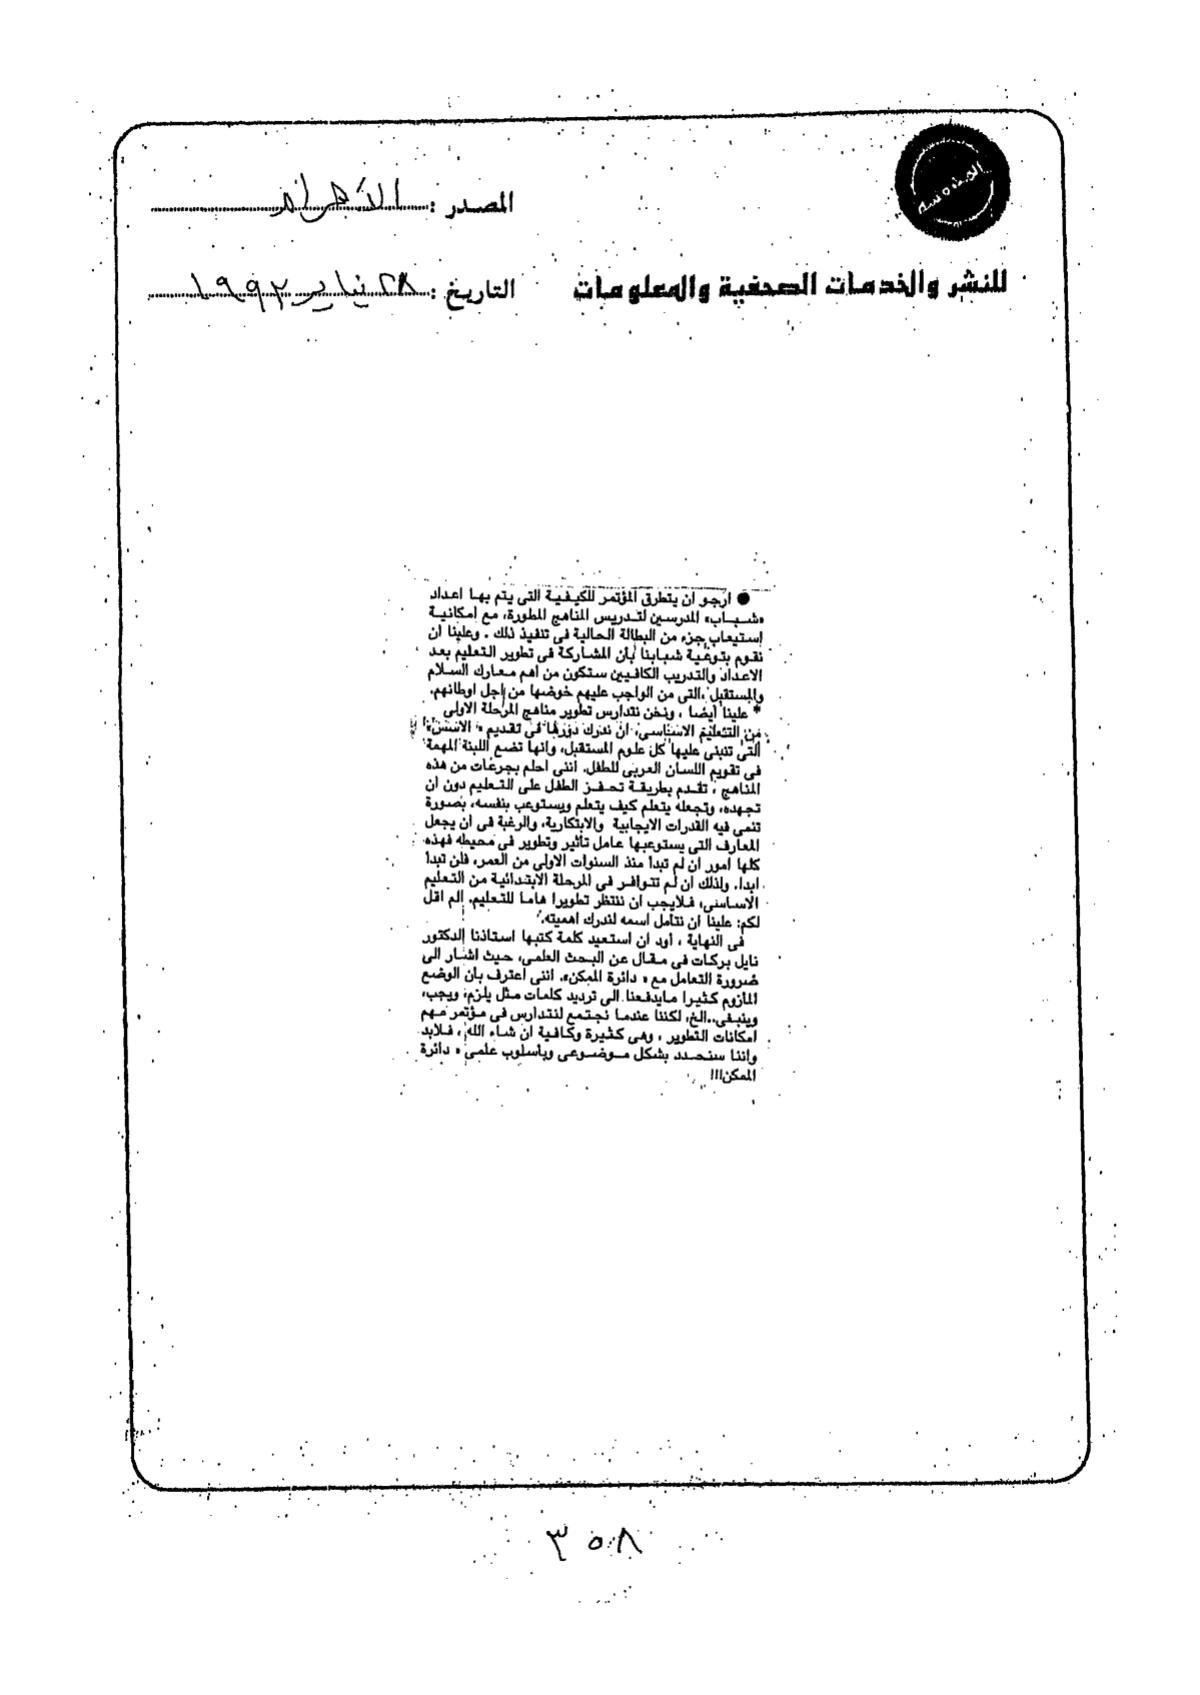 المصدر : الأهرام
للنشر والخدمات الصحفية والمعلومات
التاريخ : ٢٨ يناير ١٩٩٢
● ارجو ان يتطرق المؤتمر للكيفية التى يتم بها اعداد
«شباب» المدرسين لتدريس المناهج المطورة، مع امكانية
استيعاب جزء من البطالة الحالية فى تنفيذ ذلك . وعلينا ان
نقوم بتوعية شبابنا بأن المشاركة فى تطوير التعليم بعد
الاعداد والتدريب الكافيين ستكون من اهم معارك السلام
والمستقبل ،التى من الواجب عليهم خوضها من اجل اوطانهم.
* علينا أيضا ، ونحن نتدارس تطوير مناهج المرحلة الاولى
من التعليم الاساسى، ان ندرك دورها فى تقديم « الاسس»
التى تنبنى عليها كل علوم المستقبل، وانها تضع اللبنة المهمة
فى تقويم اللسان العربى للطفل. اننى احلم بجرعات من هذه
المناهج ، تقدم بطريقة تحفز الطفل على التعليم دون ان
تجهده، وتجعله يتعلم كيف يتعلم ويستوعب بنفسه، بصورة
تنمى فيه القدرات الايجابية والابتكارية، والرغبة فى ان يجعل
المعارف التى يستوعبها عامل تأثير وتطوير فى محيطه فهذه
كلها امور ان لم تبدأ منذ السنوات الاولى من العمر، فلن تبدأ
ابدا. ولذلك ان لم تتوافر فى المرحلة الابتدائية من التعليم
الاساسى، فلايجب ان ننتظر تطويرا هاما للتعليم. الم اقل
لكم: علينا ان نتأمل اسمه لندرك اهميته.
فى النهاية ، أود ان استعيد كلمة كتبها استاذنا الدكتور
نايل بركات فى مقال عن البحث العلمى، حيث اشار الى
ضرورة التعامل مع « دائرة الممكن». اننى اعترف بان الوضع
المأزوم كثيرا مايدفعنا الى ترديد كلمات مثل يلزم، ويجب،
وينبغى..الخ، لكننا عندما نجتمع لنتدارس فى مؤتمر مهم
امكانات التطوير ، وهى كثيرة وكافية ان شاء الله ، فلابد
واننا سنحدد بشكل موضوعى وباسلوب علمى « دائرة
الممكن!!!
٣٥٨